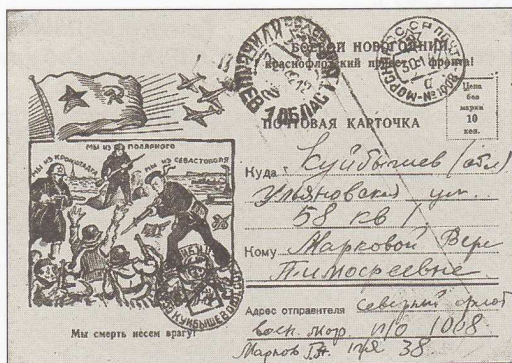 БОЕВОЙ НОВОГОДНИЙ
краснофлотский привет с фронта!
ПОЧТОВАЯ КАРТОЧКА
Цена
без
марки
10
коп.
МЫ ИЗ ПОЛЯРНОГО
МЫ ИЗ КРОНШТАДТА
МЫ ИЗ СЕВАСТОПОЛЯ
Мы смерть несем врагу!
Куда Куйбышев (обл)
Ульяновская ул.
58 кв 1
Кому Марковой Вере
Тимофеевне
Адрес отправителя северный флот
воен. мор. п/о 1008
Марков п/я 38